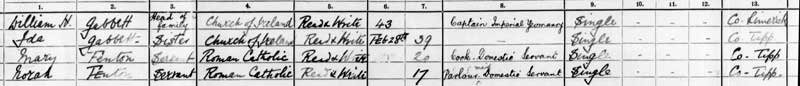 1. 2. 3. 4. 5. 6. 7. 8. 9. 10. 11. 12. 13.
William H. Gabbett Head of family Church of Ireland Read & Write 43 Captain Imperial Yeomanry Single - - - Co. Limerick
Ida Gabbett Sister Church of Ireland Read & Write 39 - Single - - - Co. Tipp
Mary Fenton Servant Roman Catholic Read & Write 20 Cook Domestic Servant Single - - - Co. Tipp
Norah Fenton Servant Roman Catholic Read & Write 17 Parlour maid Domestic Servant Single - - - Co. Tipp.